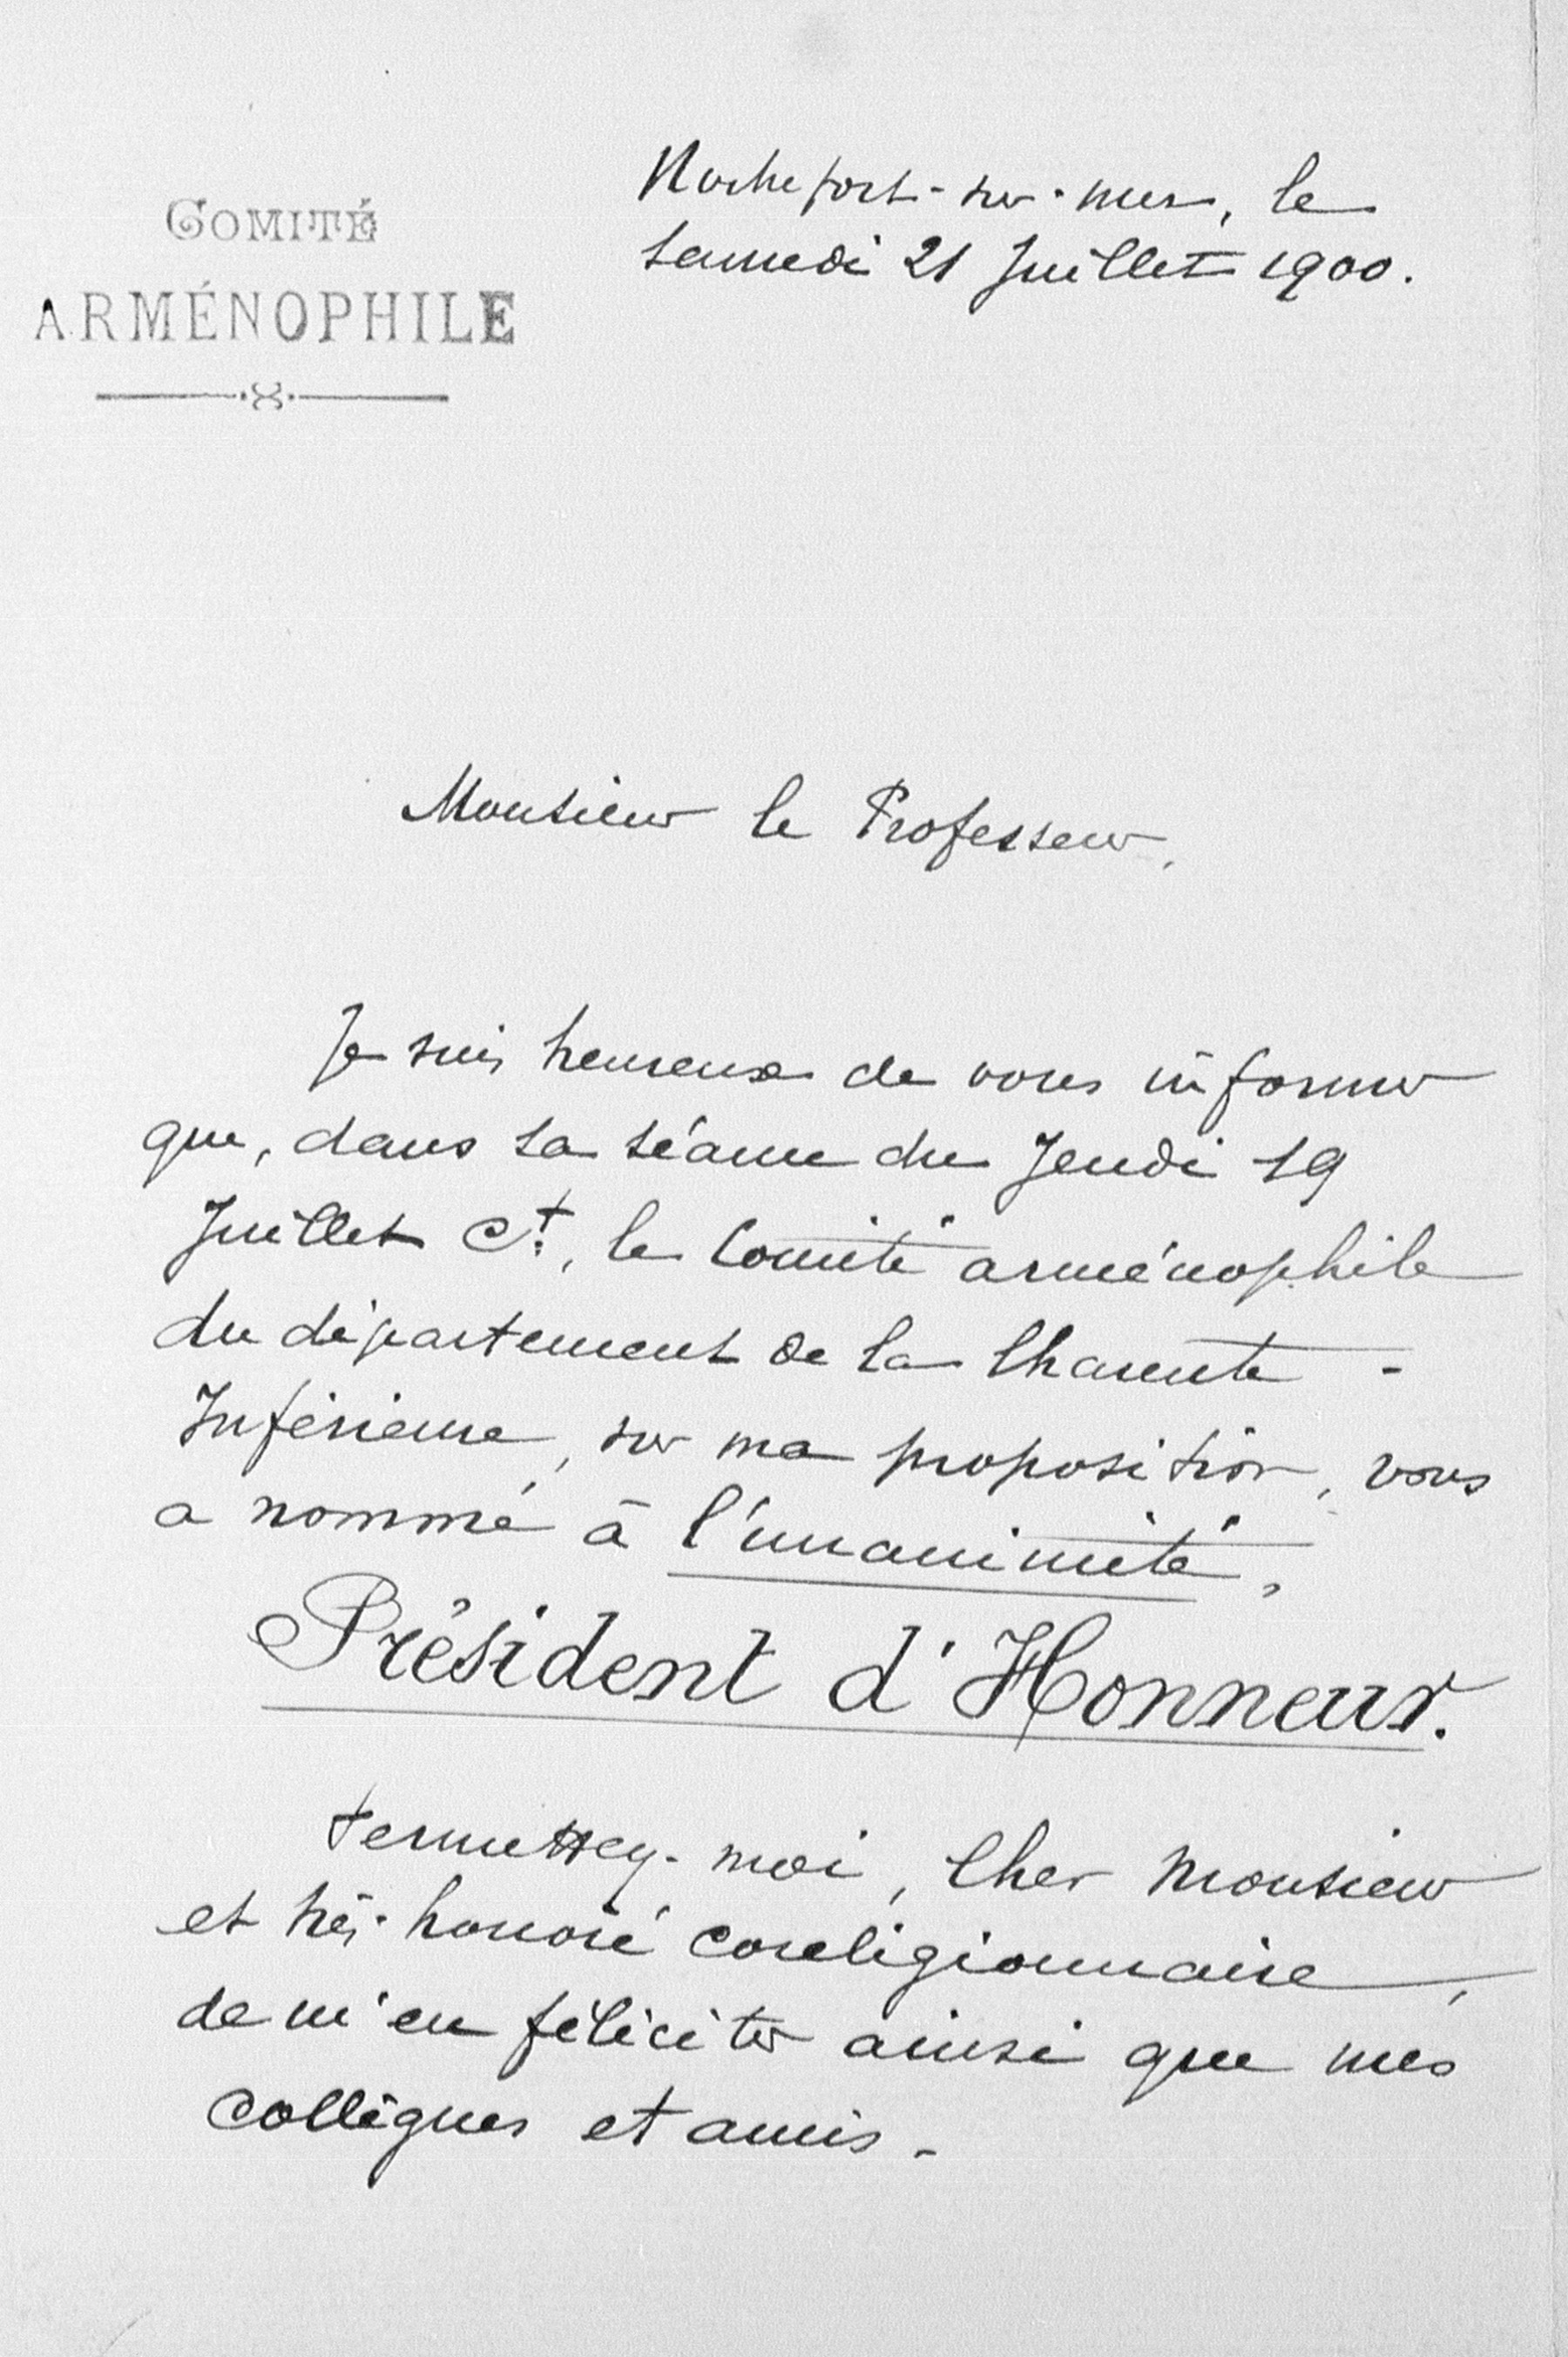 COMITÉ
ARMÉNOPHILE
Rochefort-sur-mer, le
samedi 21 Juillet 1900.
Monsieur le Professeur,
Je suis heureux de vous informer
que, dans sa séance du Jeudi 19
Juillet Ct, le Comité arménophile
du département de la Charente-
Inférieure, sur ma proposition, vous
a nommé à l'unanimité,
Président d'Honneur.
Permettez-moi, Cher Monsieur
et très-honoré coreligionnaire,
de m'en féliciter ainsi que mes
collègues et amis.